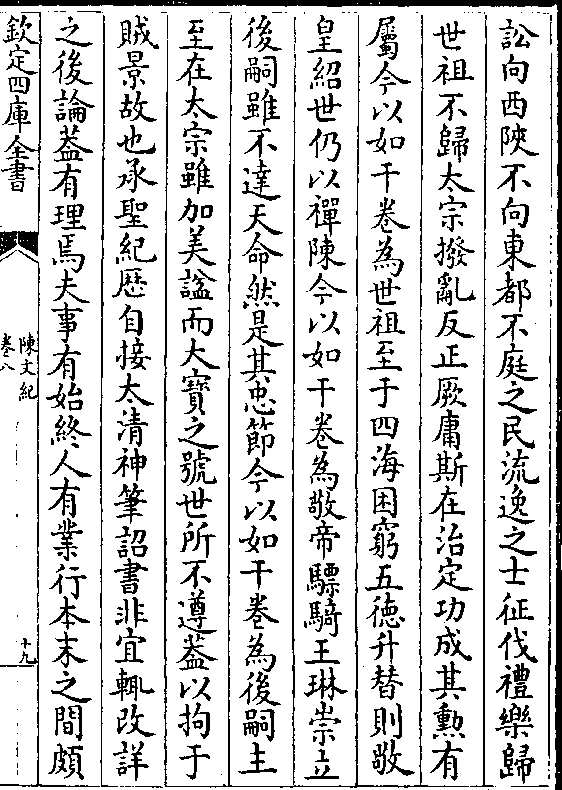 訟向西陜不向東都不庭之民流逸之士征伐禮樂歸
世祖不歸太宗撥亂反正厥庸斯在治定功成其勲有
屬今以如干卷為世祖至于四海困窮五徳升替則敬
皇紹世仍以禪陳今以如干卷為敬帝驃騎王琳崇立
後嗣雖不達天命然是其忠節今以如干卷為後嗣主
至在太宗雖加美諡而大寶之號世所不遵葢以拘于
賊景故也承聖紀歴自接太清神筆詔書非宜輒改詳
之後論葢有理焉夫事有始終人有業行本末之間頗
欽定四庫全書
陳文紀
卷八
十九